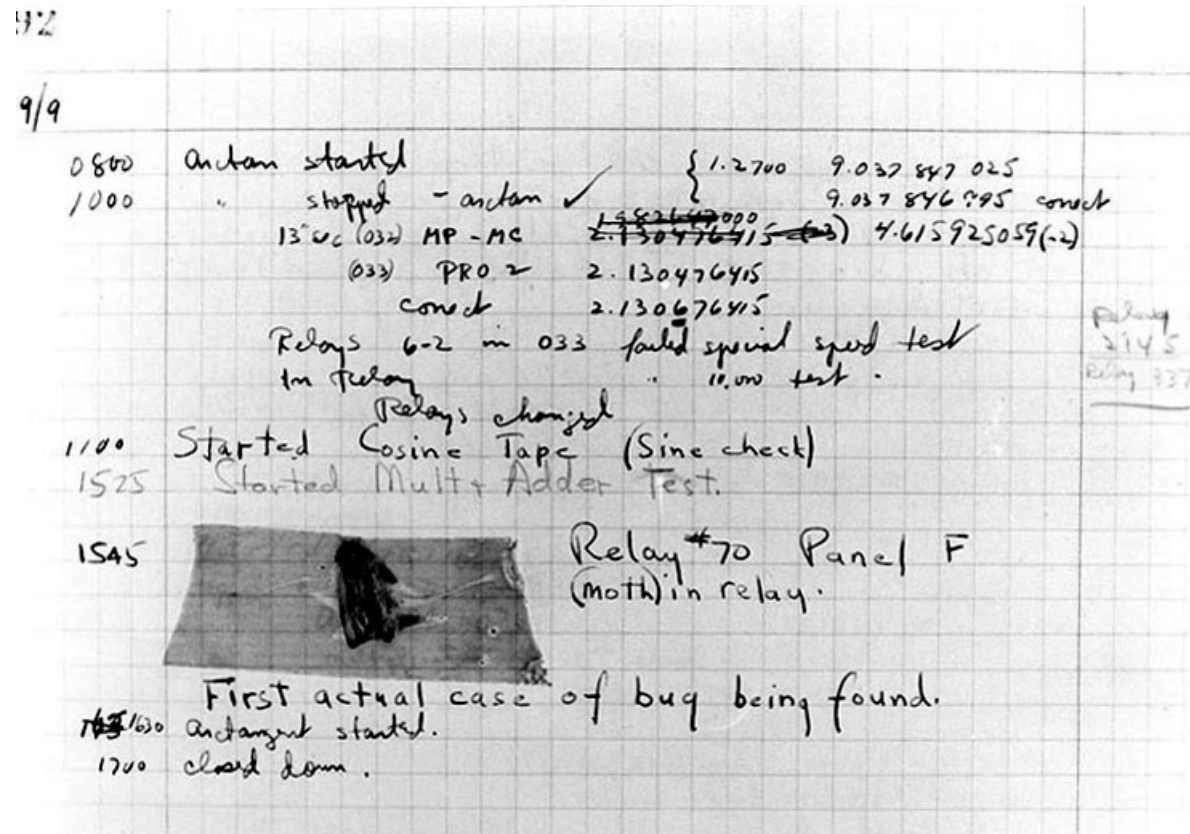 92
9/9
0800 antan started { 1.2700 9.037 847 025
1000 " stopped - antan ✓ 9.037 846 995 correct
13"uc (032) MP - MC 2.130476415 (-3) 4.615925059(-2)
(033) PRO 2 2.130476415
correct 2.130676415
Relays 6-2 in 033 failed special speed test
In Relay " 10,000 test.
Relays changed
1100 Started Cosine Tape (Sine check)
1525 Started Mult + Adder Test.
1545 Relay #70 Panel F
(moth) in relay.
First actual case of bug being found.
1630 antangent started.
1700 closed down.
Relay
2145
Relay 337